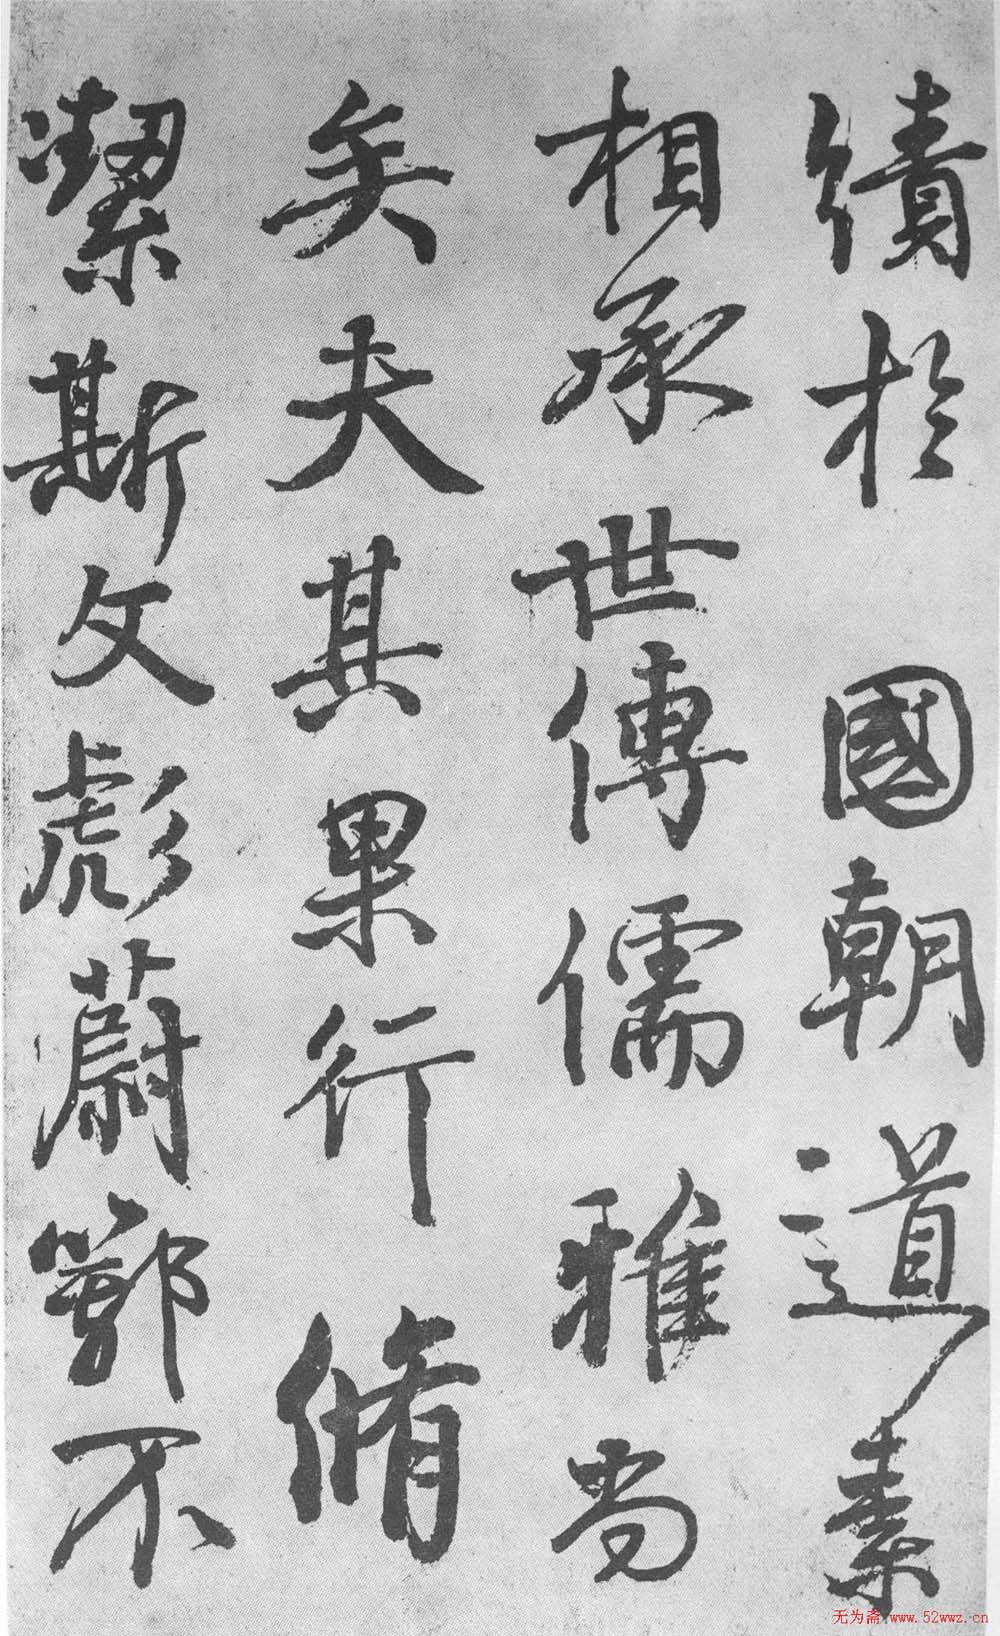 績於國朝道素
相承世傳儒雅尚
矣夫其果行脩
潔斯文彪蔚鄂不
无为斋 www.52wwz.cn